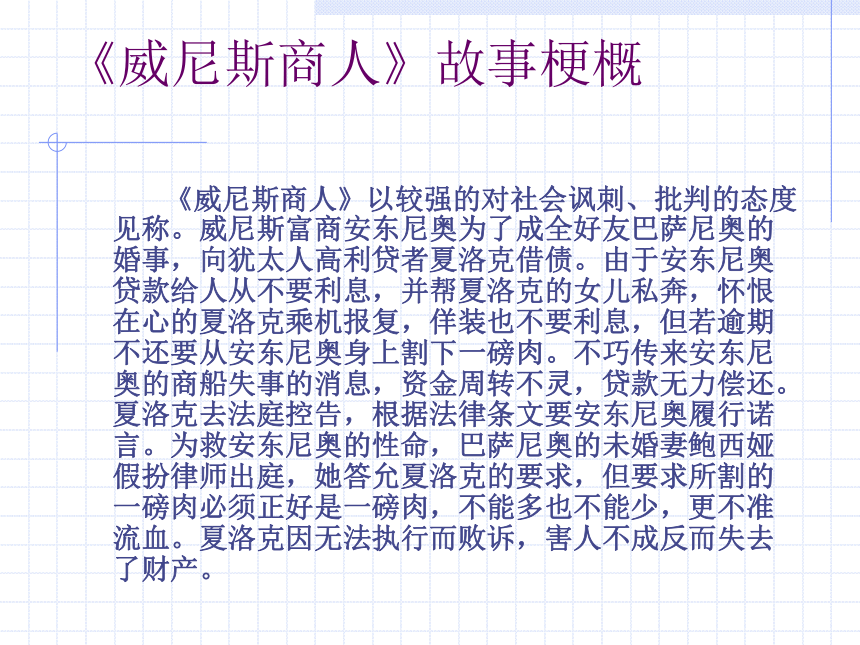 《威尼斯商人》故事梗概
《威尼斯商人》以较强的对社会讽刺、批判的态度
见称。威尼斯富商安东尼奥为了成全好友巴萨尼奥的
婚事，向犹太人高利贷者夏洛克借债。由于安东尼奥
贷款给人从不要利息，并帮夏洛克的女儿私奔，怀恨
在心的夏洛克乘机报复，佯装也不要利息，但若逾期
不还要从安东尼奥身上割下一磅肉。不巧传来安东尼
奥的商船失事的消息，资金周转不灵，贷款无力偿还。
夏洛克去法庭控告，根据法律条文要安东尼奥履行诺
言。为救安东尼奥的性命，巴萨尼奥的未婚妻鲍西娅
假扮律师出庭，她答允夏洛克的要求，但要求所割的
一磅肉必须正好是一磅肉，不能多也不能少，更不准
流血。夏洛克因无法执行而败诉，害人不成反而失去
了财产。